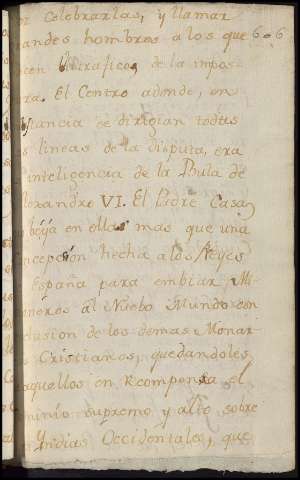 or Celebrarlas, y llamar
randes hombres a los que 606
cen de la impos
ra. El Centro adonde, en
stancia se dirigian todas
s lineas de la disputa, era
intelicencia de la Bula de
lexandro VI. El Padre Casas
o beya en ellas mas que una
ncepcion hecha a los Reyes
España para embiar Mi
oneros al Nuebo Mundo con
clusion de los demas Monar
s Cristianos, quedandoles
aquellos en Recompensa el
minio supremo y alto sobre
s Yndias Occidentales, que